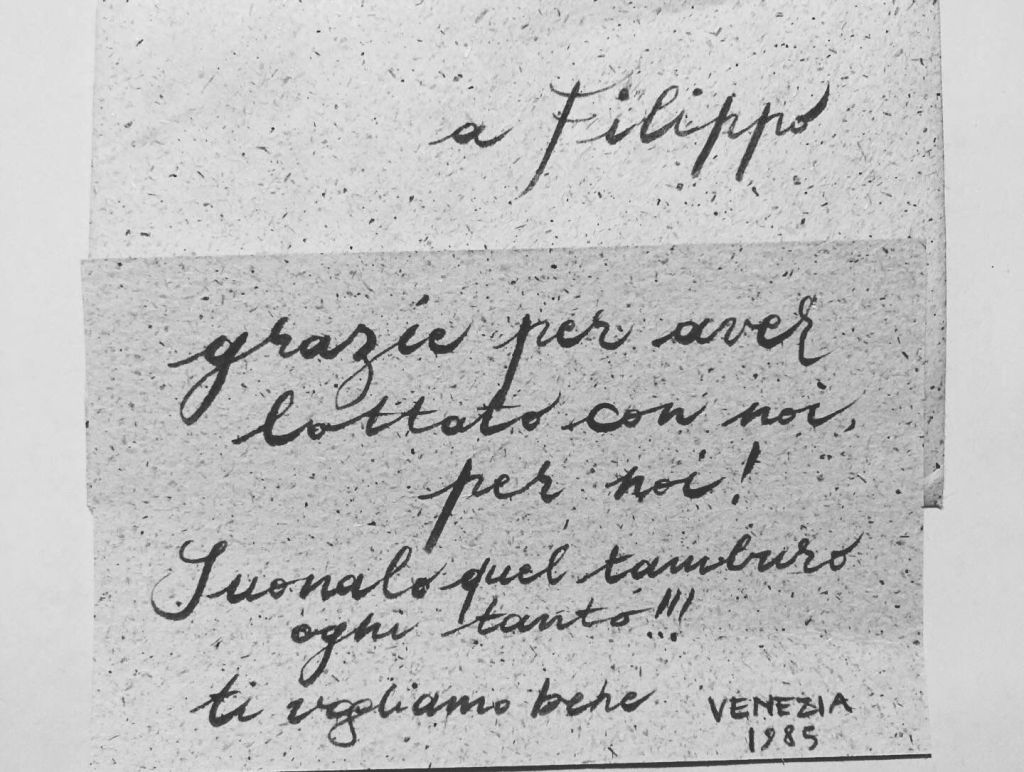 a Filippo
grazie per aver
lottato con noi,
per noi!
Suonalo quel tamburo
ogni tanto!!!
ti vogliamo bene
VENEZIA
1985